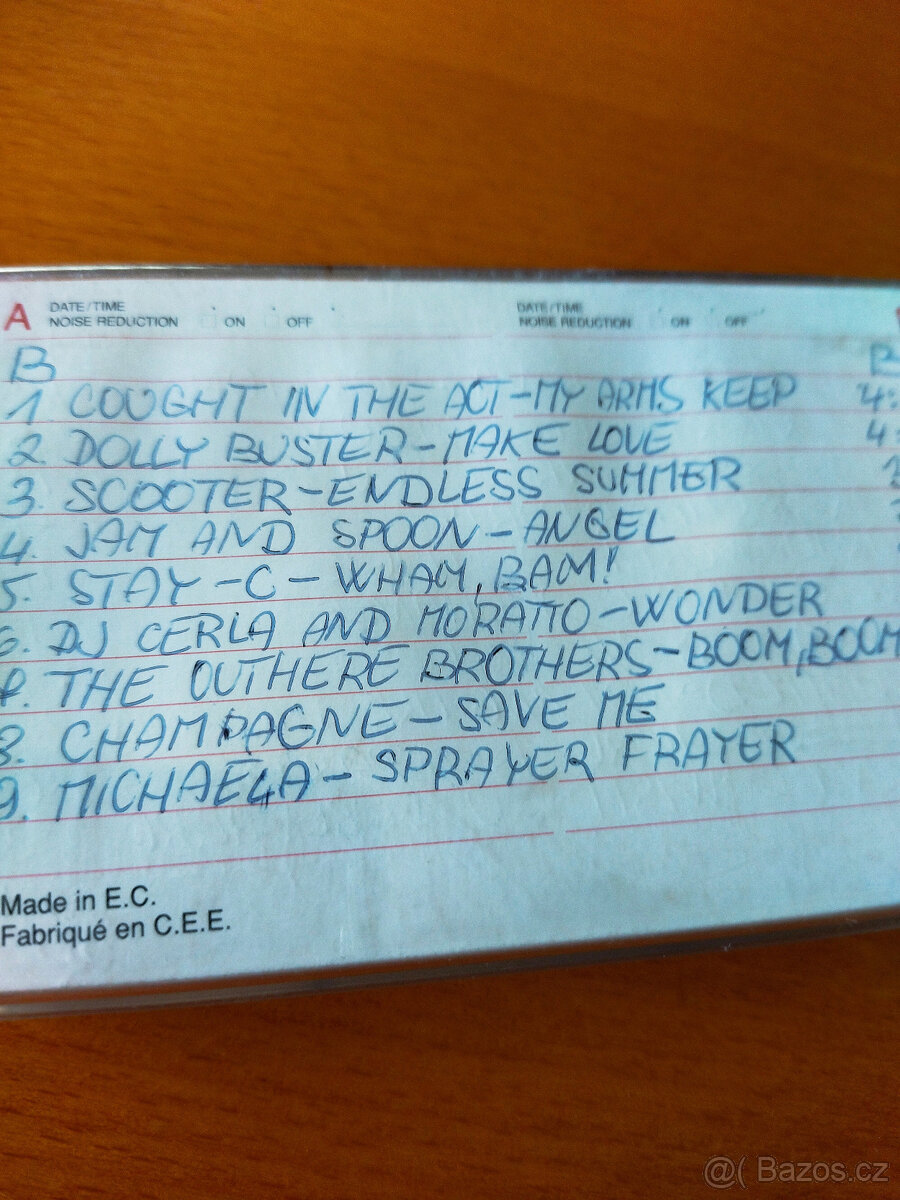 A DATE/TIME NOISE REDUCTION ON OFF DATE/TIME NOISE REDUCTION ON OFF
B B
1 COUGHT IN THE ACT-MY ARMS KEEP 4:
2. DOLLY BUSTER-MAKE LOVE 4
3. SCOOTER-ENDLESS SUMMER
4. JAM AND SPOON-ANGEL
5. STAY-C-WHAM, BAM!
6. DJ CERLA AND MORATTO-WONDER
7. THE OUTHERE BROTHERS-BOOM, BOOM
8. CHAMPAGNE-SAVE ME
9. MICHAELA-SPRAYER FRAYER
Made in E.C.
Fabriqué en C.E.E.
@( Bazos.cz